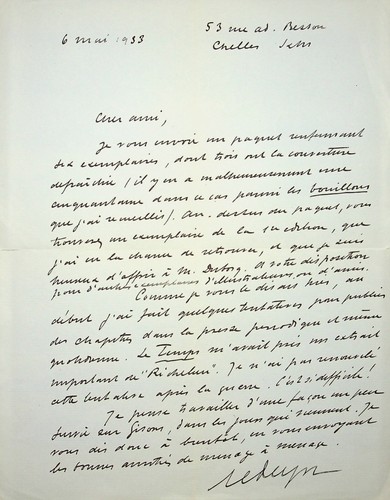 6 mai 1933
53 rue ad. Besson
Chelles
Cher ami,
Je vous envoie un paquet renfermant
six exemplaires, dont trois ont la couverture
défraîchie (il y en a malheureusement une
cinquantaine dans ce cas parmi les bouillons
que j'ai recueillis). Au-dessus du paquet, vous
trouverez un exemplaire de la 1re édition, que
j'ai eu la chance de retrouver, et que je suis
heureux d'offrir à M. A votre disposition
pour d'autres exemplaires d'illustrateurs ou d'amis.
Comme je vous le disais hier, au
début j'ai fait quelques tentatives pour publier
des chapitres dans la presse périodique et même
quotidienne. Le Temps m'avait pris un extrait
important de "Richelieu". Je n'ai pas renouvelé
cette tentative après la guerre. C'est si difficile !
Je pense travailler d'une façon un peu
suivie sur Gisors, dans les jours qui viennent. Je
vous dis donc à bientôt, en vous envoyant
les bonnes amitiés de ménage à ménage.